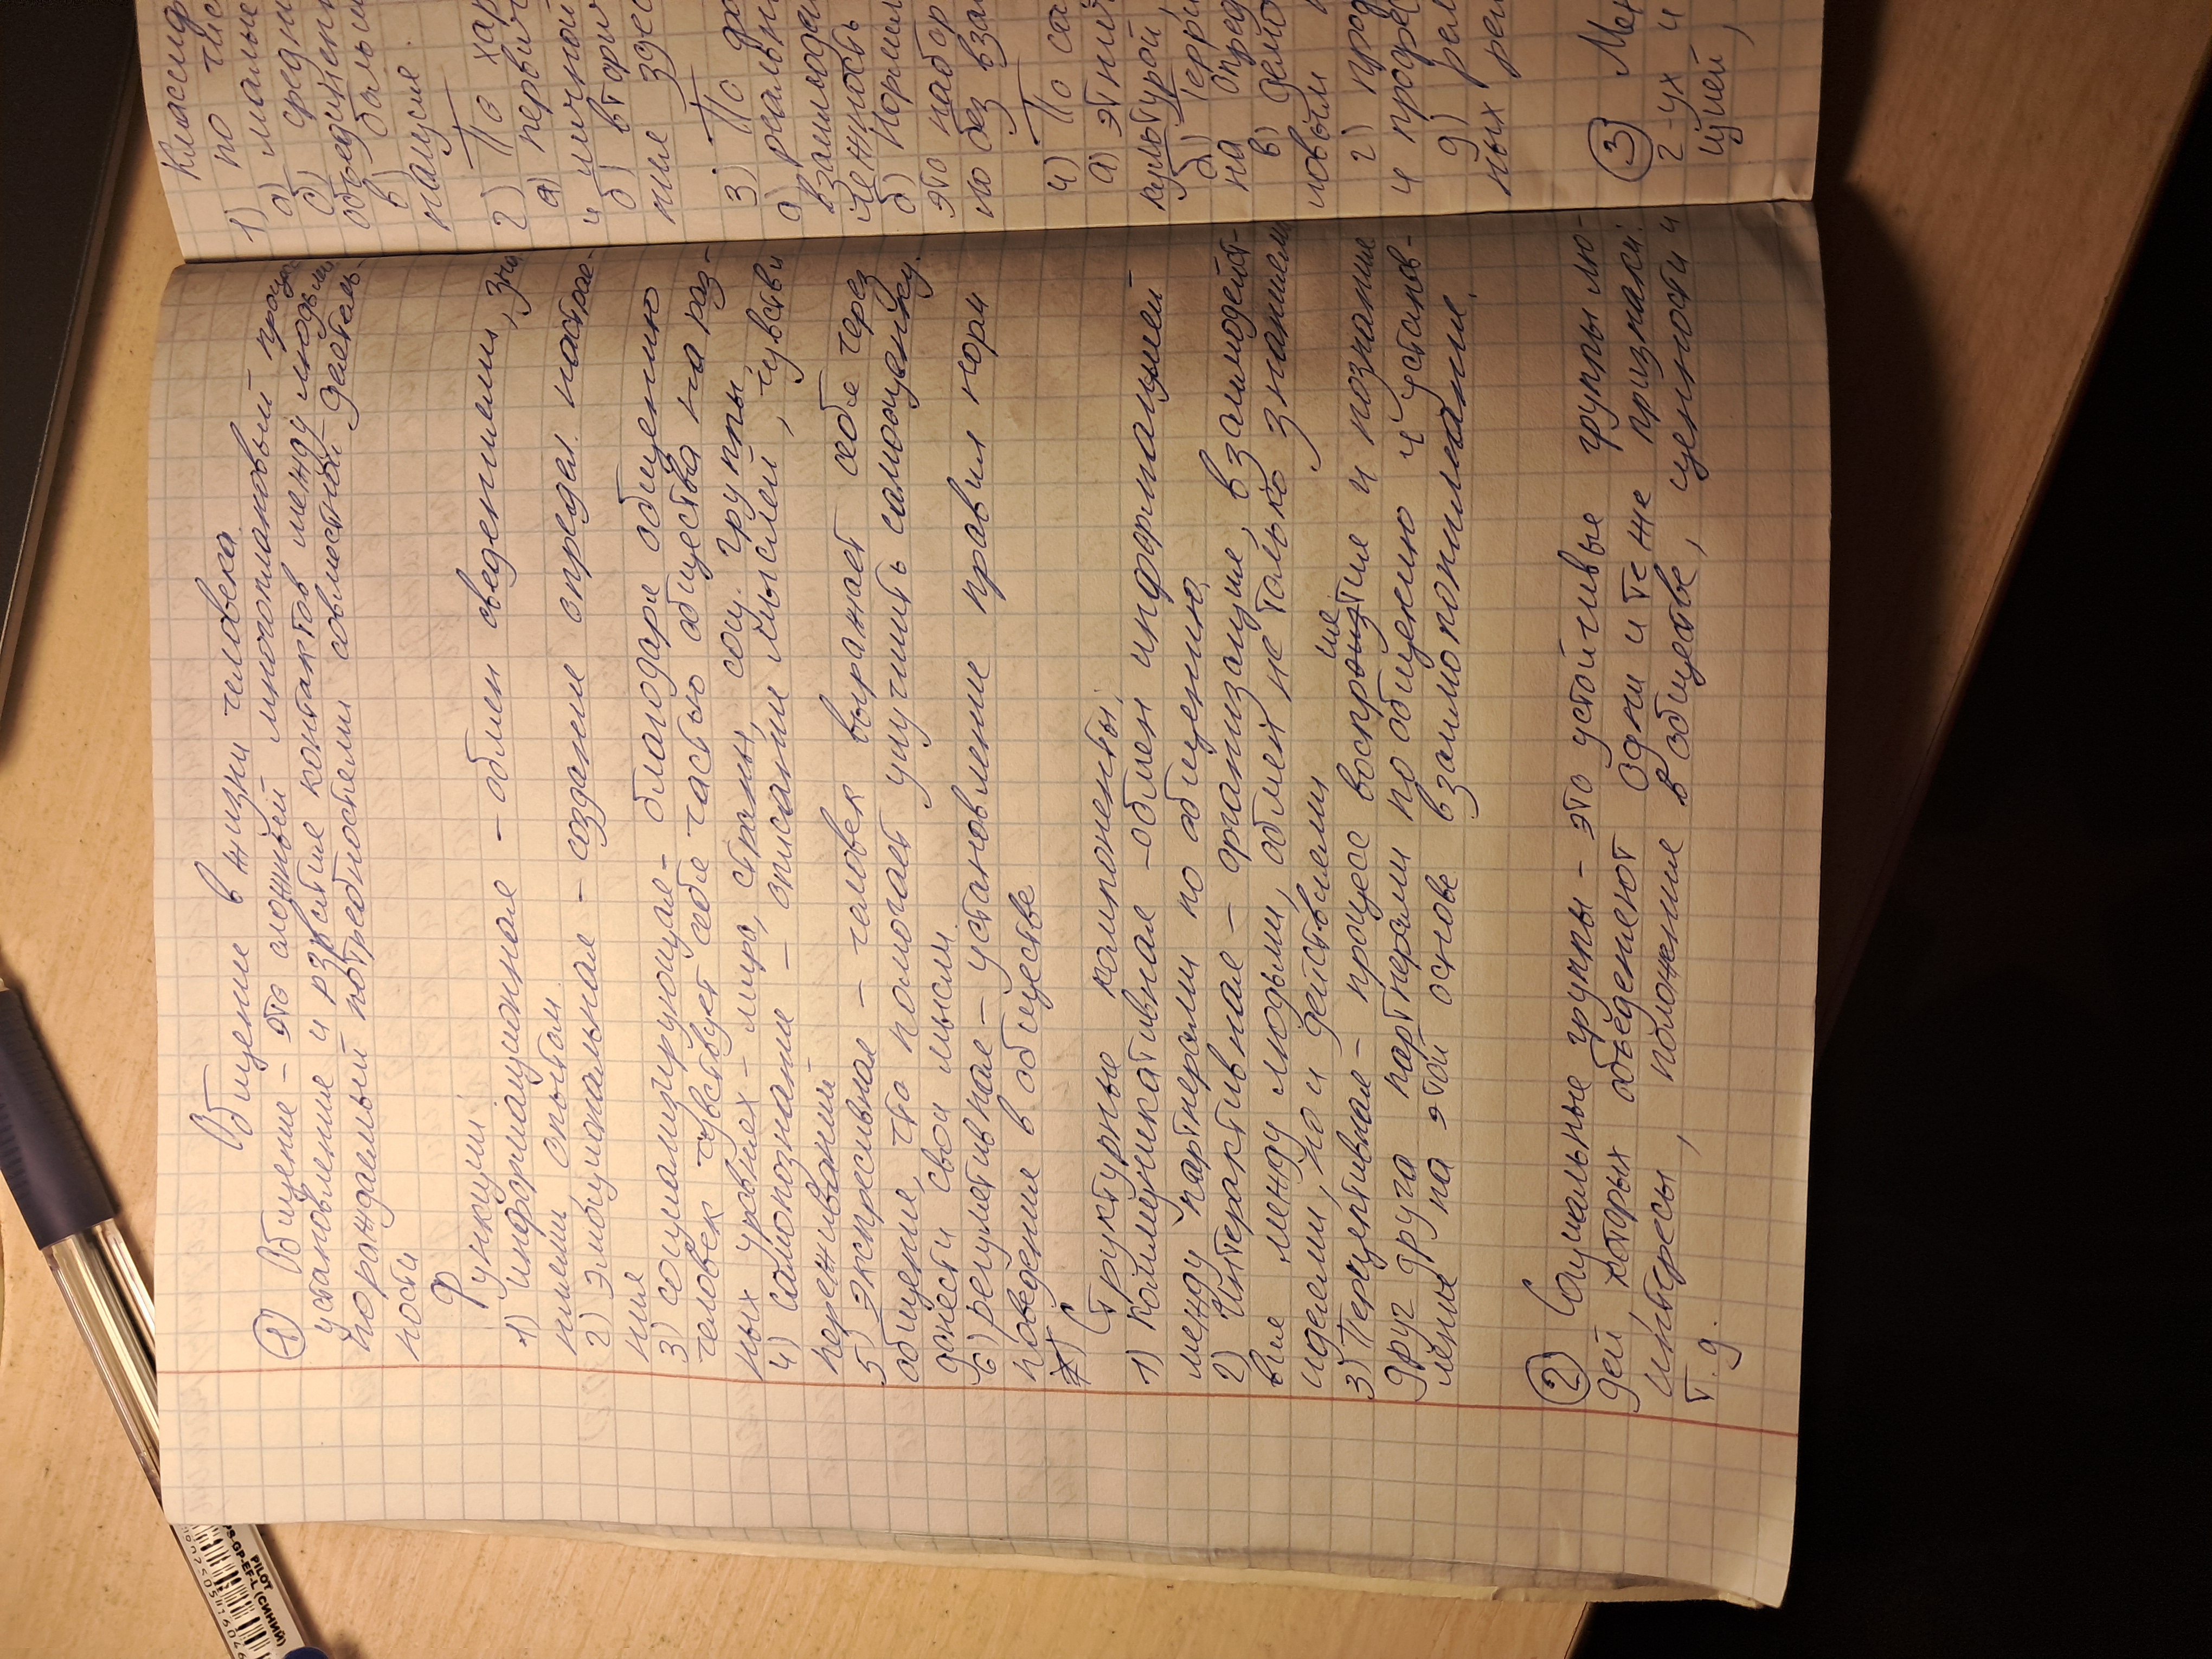 Общение в жизни человека.
① Общение - это сложный многоплановый
установление и рзвитие контактов между людьми
порождаемый потребностями совместной деятель-
ности
Функции
1) информационная - обмен сведениями,
ниями, опытом.
2) эмоциональная - создание определ. настрое-
ние
3) социализирующая - благодаря общению
человек чувствует себя частью общества на раз-
ных уровнях - мира, страны, соц. группы.
4) самопознание -, описание мыслей, чувств и
переживаний
5) экспрессивная - человек выражает себя через
общение, что помогает улучшить самооценку.
донести свои мысли.
6) регулятивная - установление правил норм
поведение в обществе
7) Структурные компоненты.
1) Коммуникативная - обмен информацией
между партнерами по общению.
2) Интерактивная - организация, взаимодейст-
вия между людьми, обмен не только знаниями
идеями, но и действиями
3) Перцептивная - процесс восприятие и познание
друг друга партнерами по общению и установ-
ления на этой основе взаимопонимание.
② Социальные группы - это устойчивые группы лю-
дей которых объеденяют одни и те же признаки:
интересы, положение в обществе, ценности и
т. д.
1) по
а) малые
в)
2) По
а)
и личной
б)
3) По
взаимодей
б)
это набор
но без
4) По
а)
культурой
б)
на
в)
г)
и
д)
ных
③
2-ух и
цией,
PILOT
(СИНИЙ)